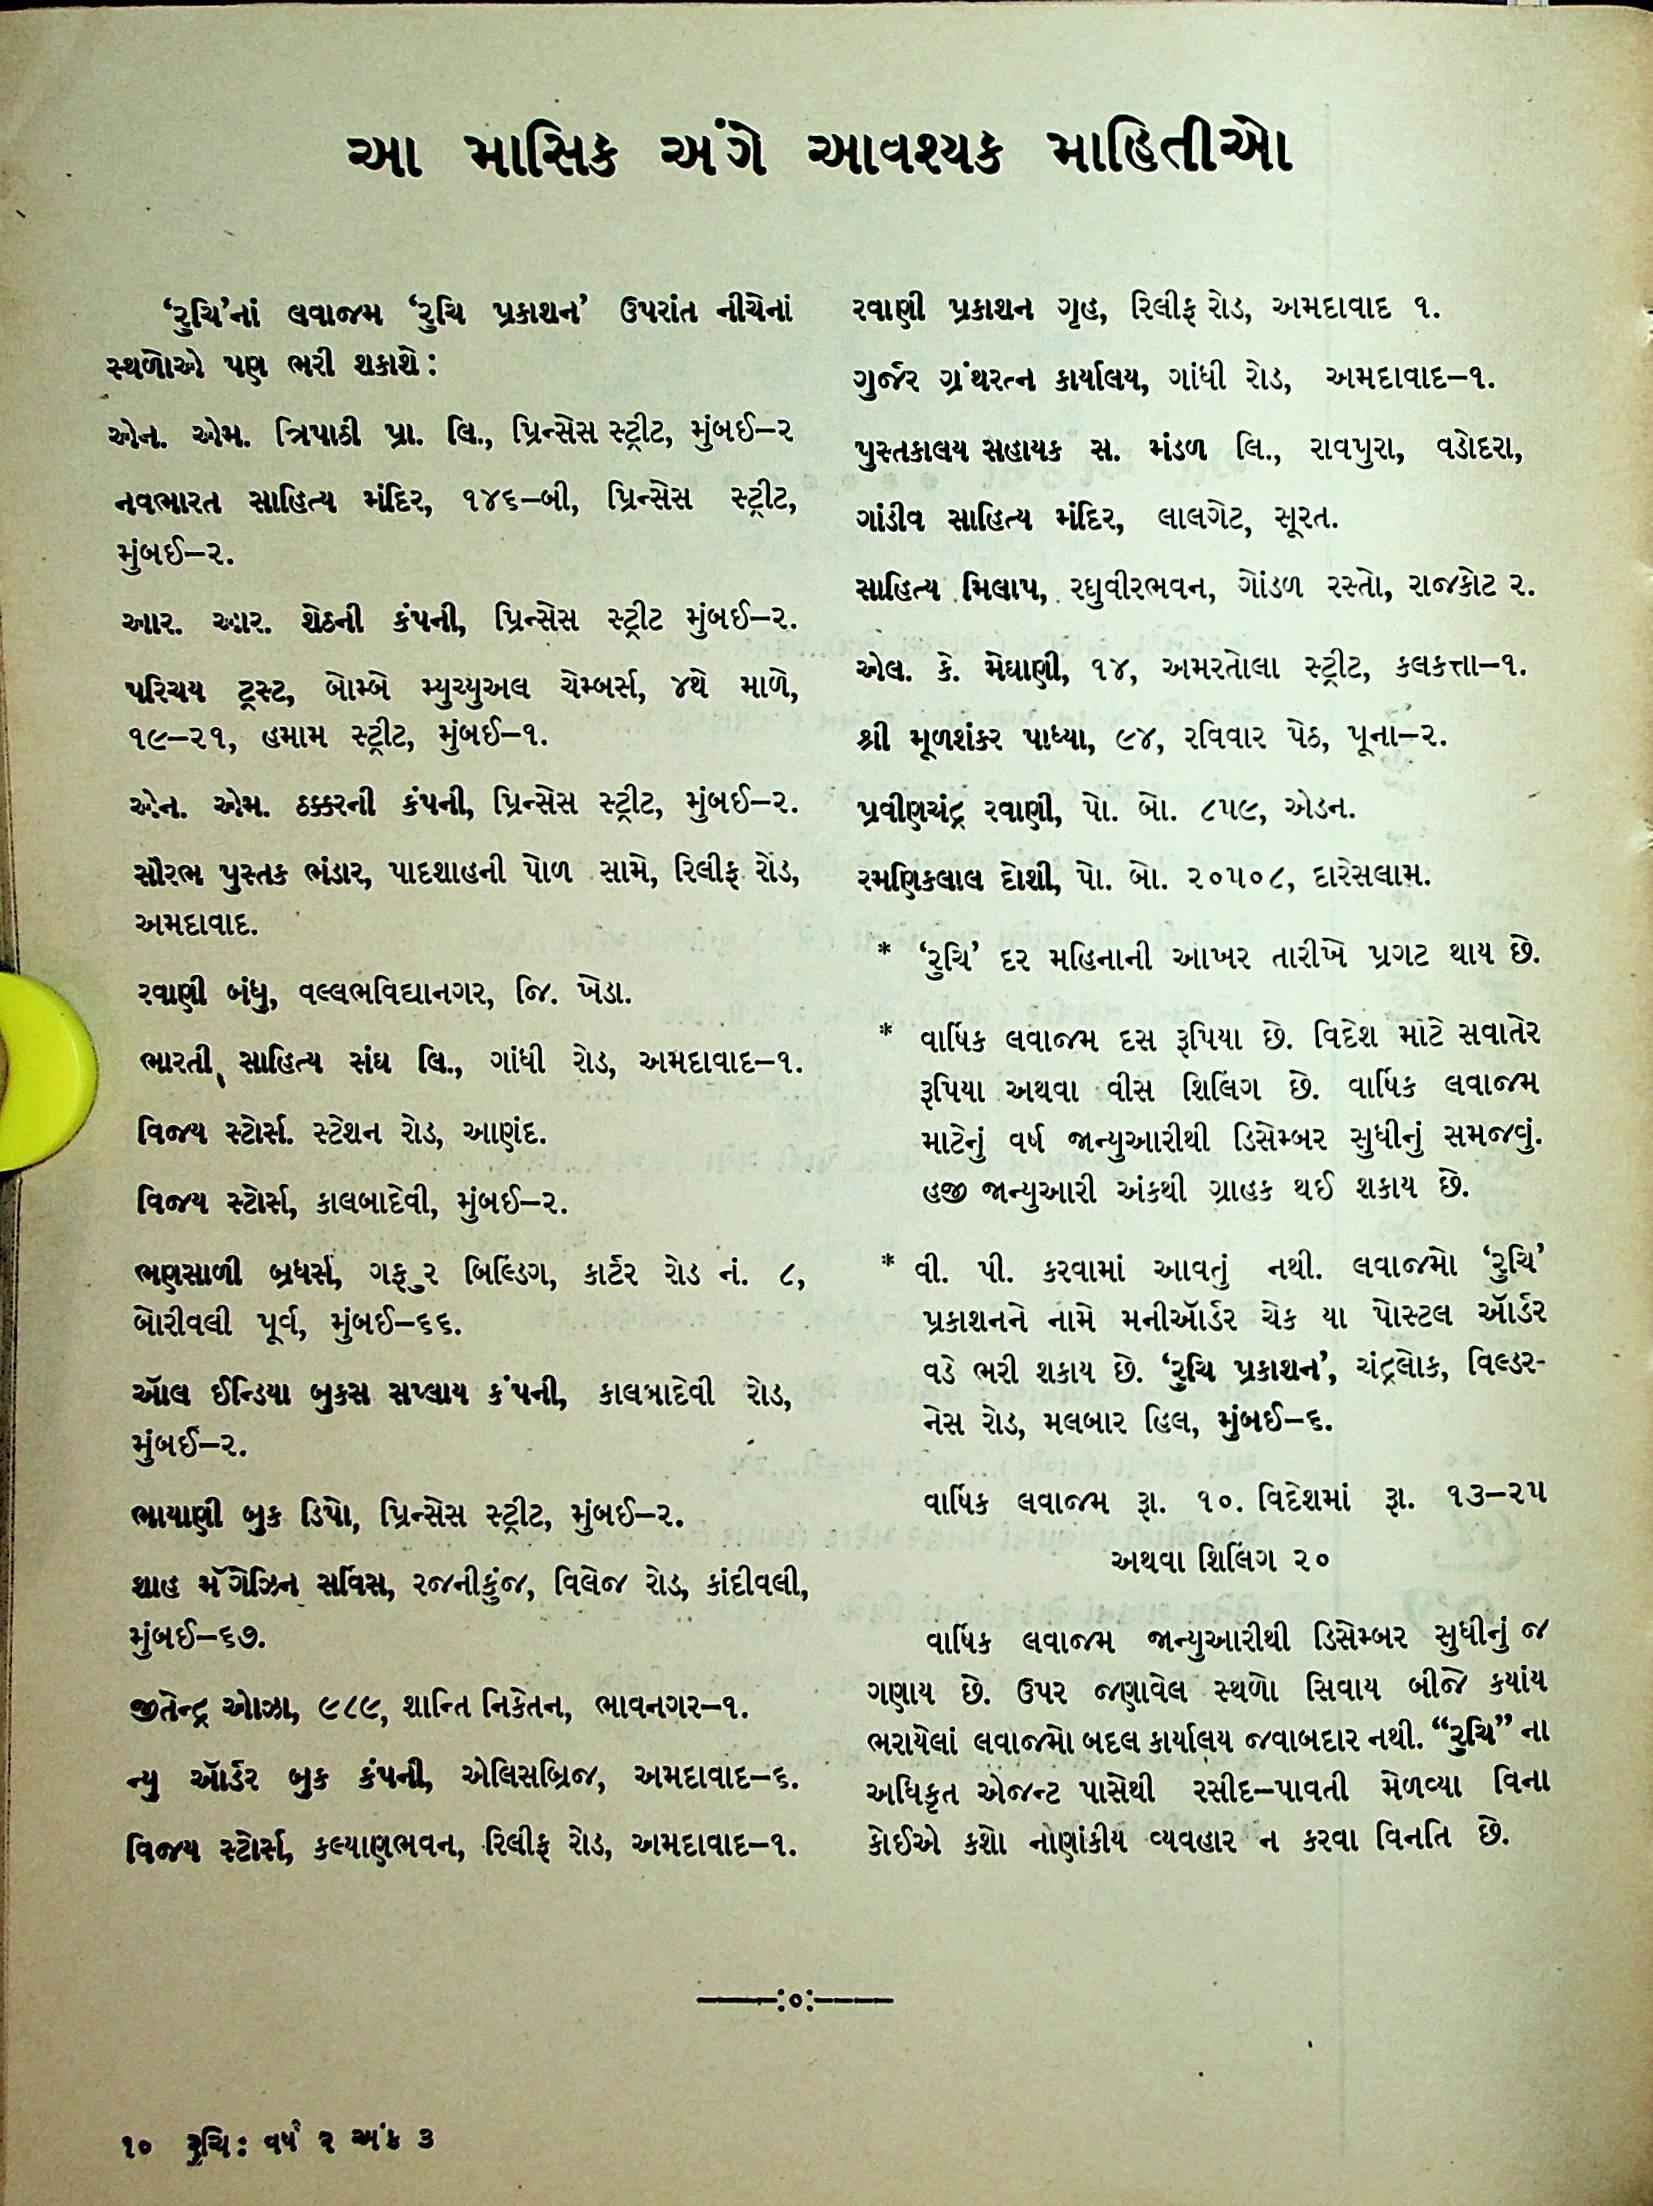 આ માસિક અંગે આવશ્યક માહિતીઓ
‘રુચિ’નાં લવાજમ ‘રુચિ પ્રકાશન’ ઉપરાંત નીચેનાં
સ્થળોએ પણ ભરી શકાશે :
એન. એમ. ત્રિપાઠી પ્રા. લિ., પ્રિન્સેસ સ્ટ્રીટ, મુંબઈ–૨
નવભારત સાહિત્ય મંદિર, ૧૪૬–બી, પ્રિન્સેસ સ્ટ્રીટ,
મુંબઈ–૨.
આર. આર. શેઠની કંપની, પ્રિન્સેસ સ્ટ્રીટ મુંબઈ–૨.
પરિચય ટ્રસ્ટ, બોમ્બે મ્યુચ્યુઅલ ચેમ્બર્સ, ૪થે માળે,
૧૯–૨૧, હમામ સ્ટ્રીટ, મુંબઈ–૧.
એન. એમ. ઠક્કરની કંપની, પ્રિન્સેસ સ્ટ્રીટ, મુંબઈ–૨.
સૌરભ પુસ્તક ભંડાર, પાદશાહની પોળ સામે, રિલીફ રોડ,
અમદાવાદ.
રવાણી બંધુ, વલ્લભવિદ્યાનગર, જિ. ખેડા.
ભારતી સાહિત્ય સંઘ લિ., ગાંધી રોડ, અમદાવાદ–૧.
વિજય સ્ટોર્સ. સ્ટેશન રોડ, આણંદ.
વિજય સ્ટોર્સ, કાલબાદેવી, મુંબઈ–૨.
ભણસાળી બ્રધર્સ, ગફુર બિલ્ડિંગ, કાર્ટર રોડ નં. ૮,
બોરીવલી પૂર્વ, મુંબઈ–૬૬.
ઑલ ઈન્ડિયા બુક્સ સપ્લાય કંપની, કાલબાદેવી રોડ,
મુંબઈ–૨.
ભાયાણી બુક ડિપો, પ્રિન્સેસ સ્ટ્રીટ, મુંબઈ–૨.
શાહ મૅગેઝિન સર્વિસ, રજનીકુંજ, વિલેજ રોડ, કાંદીવલી,
મુંબઈ–૬૭.
જીતેન્દ્ર ઓઝા, ૯૮૯, શાન્તિ નિકેતન, ભાવનગર–૧.
ન્યુ ઑર્ડર બુક કંપની, એલિસબ્રિજ, અમદાવાદ–૬.
વિજય સ્ટોર્સ, કલ્યાણભવન, રિલીફ રોડ, અમદાવાદ–૧.
રવાણી પ્રકાશન ગૃહ, રિલીફ રોડ, અમદાવાદ ૧.
ગુર્જર ગ્રંથરત્ન કાર્યાલય, ગાંધી રોડ, અમદાવાદ–૧.
પુસ્તકાલય સહાયક સ. મંડળ લિ., રાવપુરા, વડોદરા,
ગાંડીવ સાહિત્ય મંદિર, લાલગેટ, સૂરત.
સાહિત્ય મિલાપ, રઘુવીરભવન, ગોંડળ રસ્તો, રાજકોટ ૨.
એલ. કે. મેઘાણી, ૧૪, અમરતોલા સ્ટ્રીટ, કલકત્તા–૧.
શ્રી મૂળશંકર પાધ્યા, ૯૪, રવિવાર પેઠ, પૂના–૨.
પ્રવીણચંદ્ર રવાણી, પો. બો. ૮૫૯, એડન.
રમણિકલાલ દોશી, પો. બો. ૨૦૫૦૮, દારેસલામ.
* ‘રુચિ’ દર મહિનાની આખર તારીખે પ્રગટ થાય છે.
* વાર્ષિક લવાજમ દસ રૂપિયા છે. વિદેશ માટે સવાતેર
રૂપિયા અથવા વીસ શિલિંગ છે. વાર્ષિક લવાજમ
માટેનું વર્ષ જાન્યુઆરીથી ડિસેમ્બર સુધીનું સમજવું.
હજી જાન્યુઆરી અંકથી ગ્રાહક થઈ શકાય છે.
* વી. પી. કરવામાં આવતું નથી. લવાજમો ‘રુચિ’
પ્રકાશનને નામે મનીઑર્ડર ચેક યા પોસ્ટલ ઑર્ડર
વડે ભરી શકાય છે. ‘રુચિ પ્રકાશન’, ચંદ્રલોક, વિલ્ડર-
નેસ રોડ, મલબાર હિલ, મુંબઈ–૬.
વાર્ષિક લવાજમ રૂા. ૧૦. વિદેશમાં રૂા. ૧૩–૨૫
અથવા શિલિંગ ૨૦
વાર્ષિક લવાજમ જાન્યુઆરીથી ડિસેમ્બર સુધીનું જ
ગણાય છે. ઉપર જણાવેલ સ્થળો સિવાય બીજે કયાંય
ભરાયેલાં લવાજમો બદલ કાર્યાલય જવાબદાર નથી. “રુચિ” ના
અધિકૃત એજન્ટ પાસેથી રસીદ–પાવતી મેળવ્યા વિના
કોઈએ કશો નાણાંકીય વ્યવહાર ન કરવા વિનતિ છે.
૧૦ રુચિ : વર્ષ ૨ અંક ૩